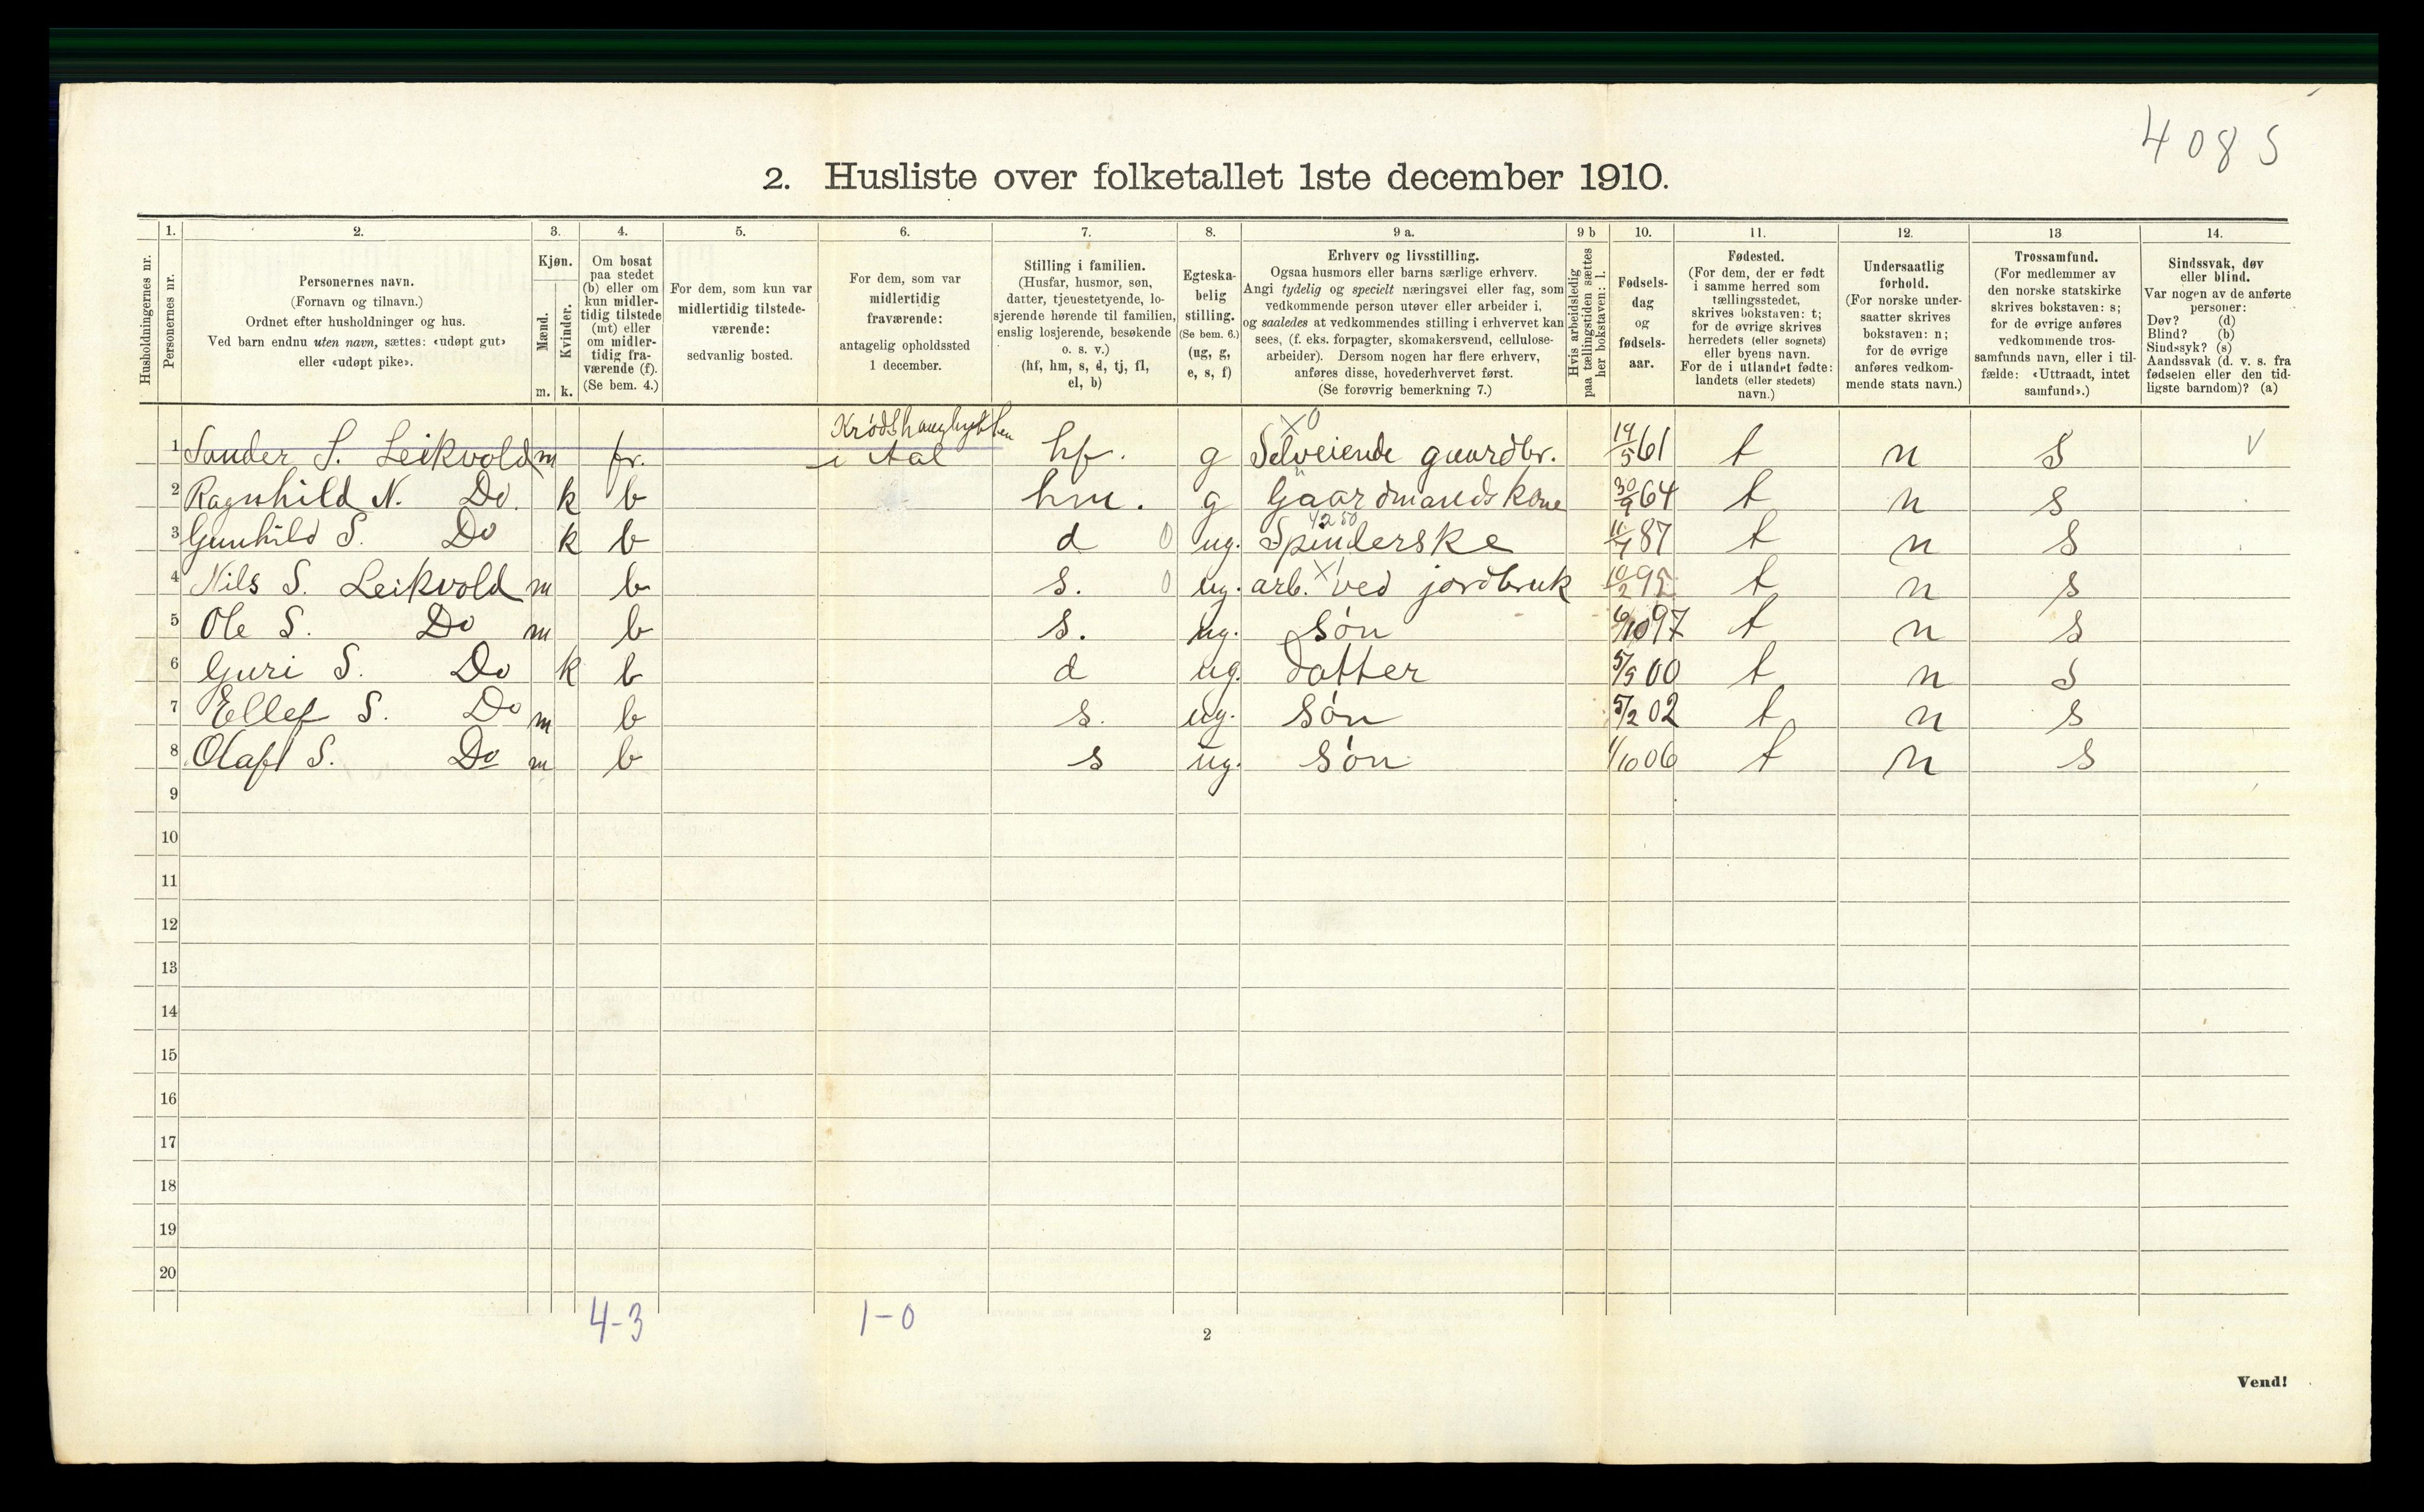 4085
2. Husliste over folketallet 1ste december 1910.
Husholdningernes nr.
1. Personernes nr.
2. Personernes navn. (Fornavn og tilnavn.) Ordnet efter husholdninger og hus. Ved barn endnu uten navn, sættes: «udøpt gut» eller «udøpt pike».
3. Kjøn. Mænd. m. Kvinder. k.
4. Om bosat paa stedet (b) eller om kun midlertidig tilstede (mt) eller om midlertidig fraværende (f). (Se bem. 4.)
5. For dem, som kun var midlertidig tilstedeværende: sedvanlig bosted.
6. For dem, som var midlertidig fraværende: antagelig opholdssted 1 december.
7. Stilling i familien. (Husfar, husmor, søn, datter, tjenestetyende, losjerende hørende til familien, enslig losjerende, besøkende o. s. v.) (hf, hm, s, d, tj, fl, el, b)
8. Egteskabelig stilling. (Se bem. 6.) (ug, g, e, s, f)
9 a. Erhverv og livsstilling. Ogsaa husmors eller barns særlige erhverv. Angi tydelig og specielt næringsvei eller fag, som vedkommende person utøver eller arbeider i, og saaledes at vedkommendes stilling i erhvervet kan sees, (f. eks. forpagter, skomakersvend, cellulosearbeider). Dersom nogen har flere erhverv, anføres disse, hovederhvervet først. (Se forøvrig bemerkning 7.)
9 b Hvis arbeidsledig paa tællingstiden sættes her bokstaven: l.
10. Fødselsdag og fødselsaar.
11. Fødested. (For dem, der er født i samme herred som tællingsstedet, skrives bokstaven: t; for de øvrige skrives herredets (eller sognets) eller byens navn. For de i utlandet fødte: landets (eller stedets) navn.)
12. Undersaatlig forhold. (For norske undersaatter skrives bokstaven: n; for de øvrige anføres vedkommende stats navn.)
13 Trossamfund. (For medlemmer av den norske statskirke skrives bokstaven: s; for de øvrige anføres vedkommende trossamfunds navn, eller i tilfælde: «Uttraadt, intet samfund».)
14. Sindssvak, døv eller blind. Var nogen av de anførte personer: Døv? (d) Blind? (b) Sindssyk? (s) Aandssvak (d. v. s. fra fødselen eller den tidligste barndom)? (a)
1 Sander S. Leikvold m fr. i Aal hf. g Selveiende gaardbr. X0 19/5 61 t n S V
2 Ragnhild N. Do. k b hm. g Gaardmandskone 30/9 64 t n s
3 Gunhild S. Do k b d 0 ug. Spinderske 4250 11/7 87 t n S
4 Nils S. Leikvold m b s. 0 ug. arb. ved jordbruk 10/2 95 t n s
5 Ole S. Do m b s. ug. Søn 6/10 97 t n s
6 Guri S. Do k b d ug. Datter 5/9 00 t n s
7 Ellef S. Do m b s. ug. Søn 5/2 02 t n s
8 Olaf S. Do m b s ug. Søn 1/10 06 t n s
9
10
11
12
13
14
15
16
17
18
19
20
4-3 1-0
2
Vend!